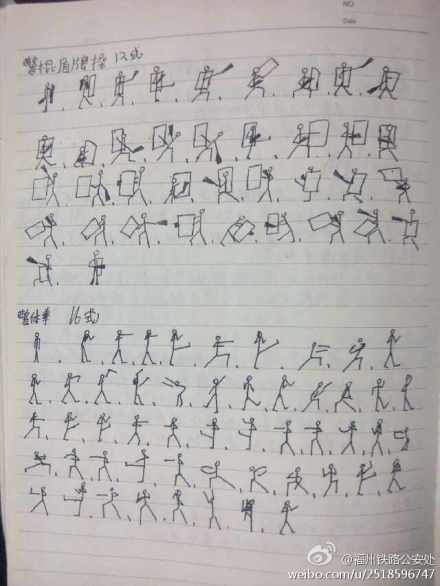 NO
Date
警棍盾牌操 12式
警体拳 16式
@福州铁路公安处
weibo.com/u/2518596747